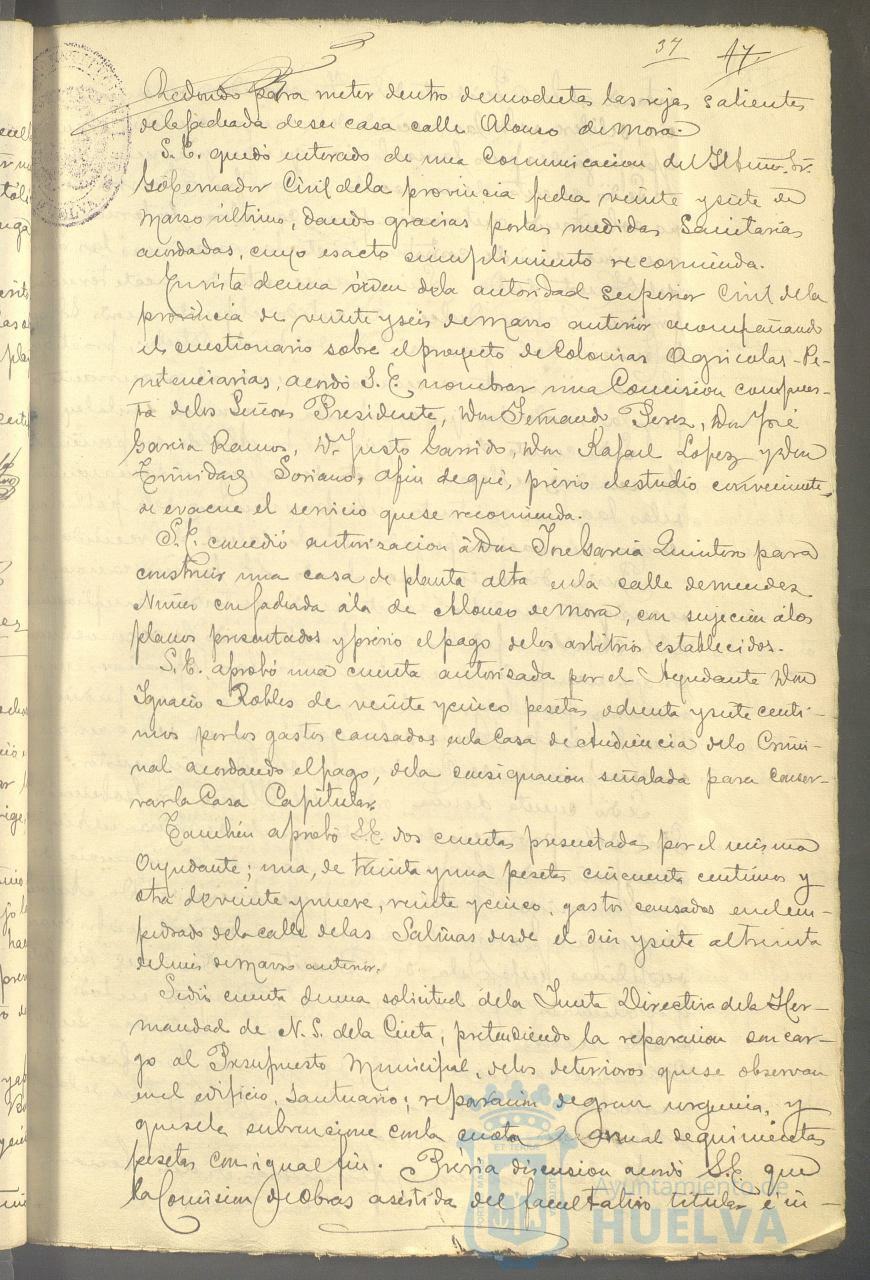 37 17
Redondo para meter dentro de mochetas las rejas salientes
de la fachada de su casa calle Alonso de Mora.
S. E. quedó enterado de una comunicacion del Iltmo. Sr.
Gobernador Civil de la provincia fecha veinte y siete de
Marzo último, dando gracias por las medidas sanitarias
acordadas, cuyo esacto cumplimiento recomienda.
En vista de una órden de la autoridad superior Civil de la
provincia de veinte y seis de Marzo anterior acompañando
el cuestionario sobre el proyecto de Colonias Agricolas-Pe-
nitenciarias, acordó S. E. nombrar una Comision compues-
ta de los Señores Presidente, Don Fernando Perez, Don José
Garcia Ramos, D. Justo Garrido, Don Rafael Lopez y Don
Trinidad Soriano, á fin de que, prévio el estudio conveniente,
se evacue el servicio que se recomienda.
S. E. concedió autorizacion á Don José Garcia Quintero para
construir una casa de planta alta en la calle de Mendez
Nuñez con fachada á la de Alonso de Mora, con sujecion á los
planos presentados y prévio el pago de los arbitrios establecidos.
S. E. aprobó una cuenta autorizada por el Ayudante Don
Ignacio Robles de veinte y cinco pesetas ochenta y siete centi-
mos por los gastos causados en la Casa de Audiencia de lo Crimi-
nal acordando el pago, de la consignacion señalada para conser-
var la Casa Capitular.
Tambien aprobó S. E. dos cuentas presentadas por el mismo
Ayudante; una, de treinta y una pesetas cincuenta centimos y
otra de veinte y nueve, veinte y cinco, gastos causados en el em-
pedrado de la calle de las Salinas desde el diez y siete al treinta
del mes de Marzo anterior.
Se dió cuenta de una solicitud de la Junta Directiva de la Her-
mandad de N. S. de la Cinta, pretendiendo la reparacion con car-
go al Presupuesto Municipal, de los deterioros que se observan
en el edificio, Santuario; reparacion de gran urgencia, y
que se le subvencione con la cuota anual de quinientas
pesetas con igual fin. Prévia discusion acordó S. E. que
la Comision de Obras asistida del facultativo titular é in-
Ayuntamiento de
HUELVA